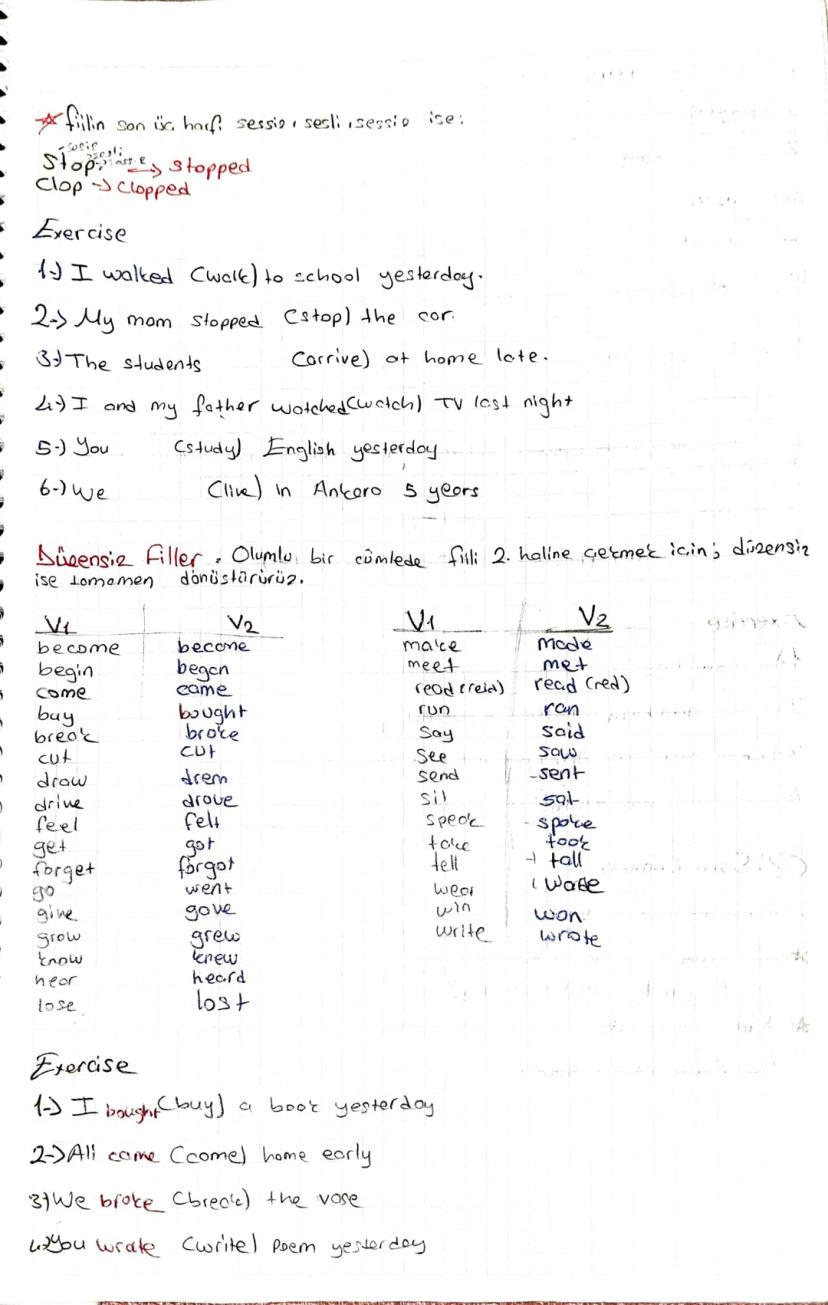 ☆ fiilin son üç harfi sessiz, sesli, sessiz ise:
Stop → Stopped
Clap → Clapped
Exercise
1-) I walked (walk) to school yesterday.
2-) My mom stopped (stop) the car.
3-) The students (arrive) at home late.
4-) I and my father watched (watch) TV last night
5-) You (study) English yesterday
6-) We (live) in Ankara 5 years
Düzensiz Filler. Olumlu bir cümlede fiili 2. haline çekmek için; düzensiz
ise tamamen dönüştürürüz.
V1 V2 V1 V2
become became make made
begin began meet met
come came read (reid) read (red)
buy bought run ran
break broke say said
cut cut see saw
draw drew send sent
drive drove sit sat
feel felt speak spoke
get got take took
forget forgot tell tall
go went wear wore
give gave win won
grow grew write wrote
know knew
hear heard
lose lost
Exercise
1-) I bought (buy) a book yesterday
2-) Ali came (come) home early
3-) We broke (break) the vase
4-) You wrote (write) Poem yesterday